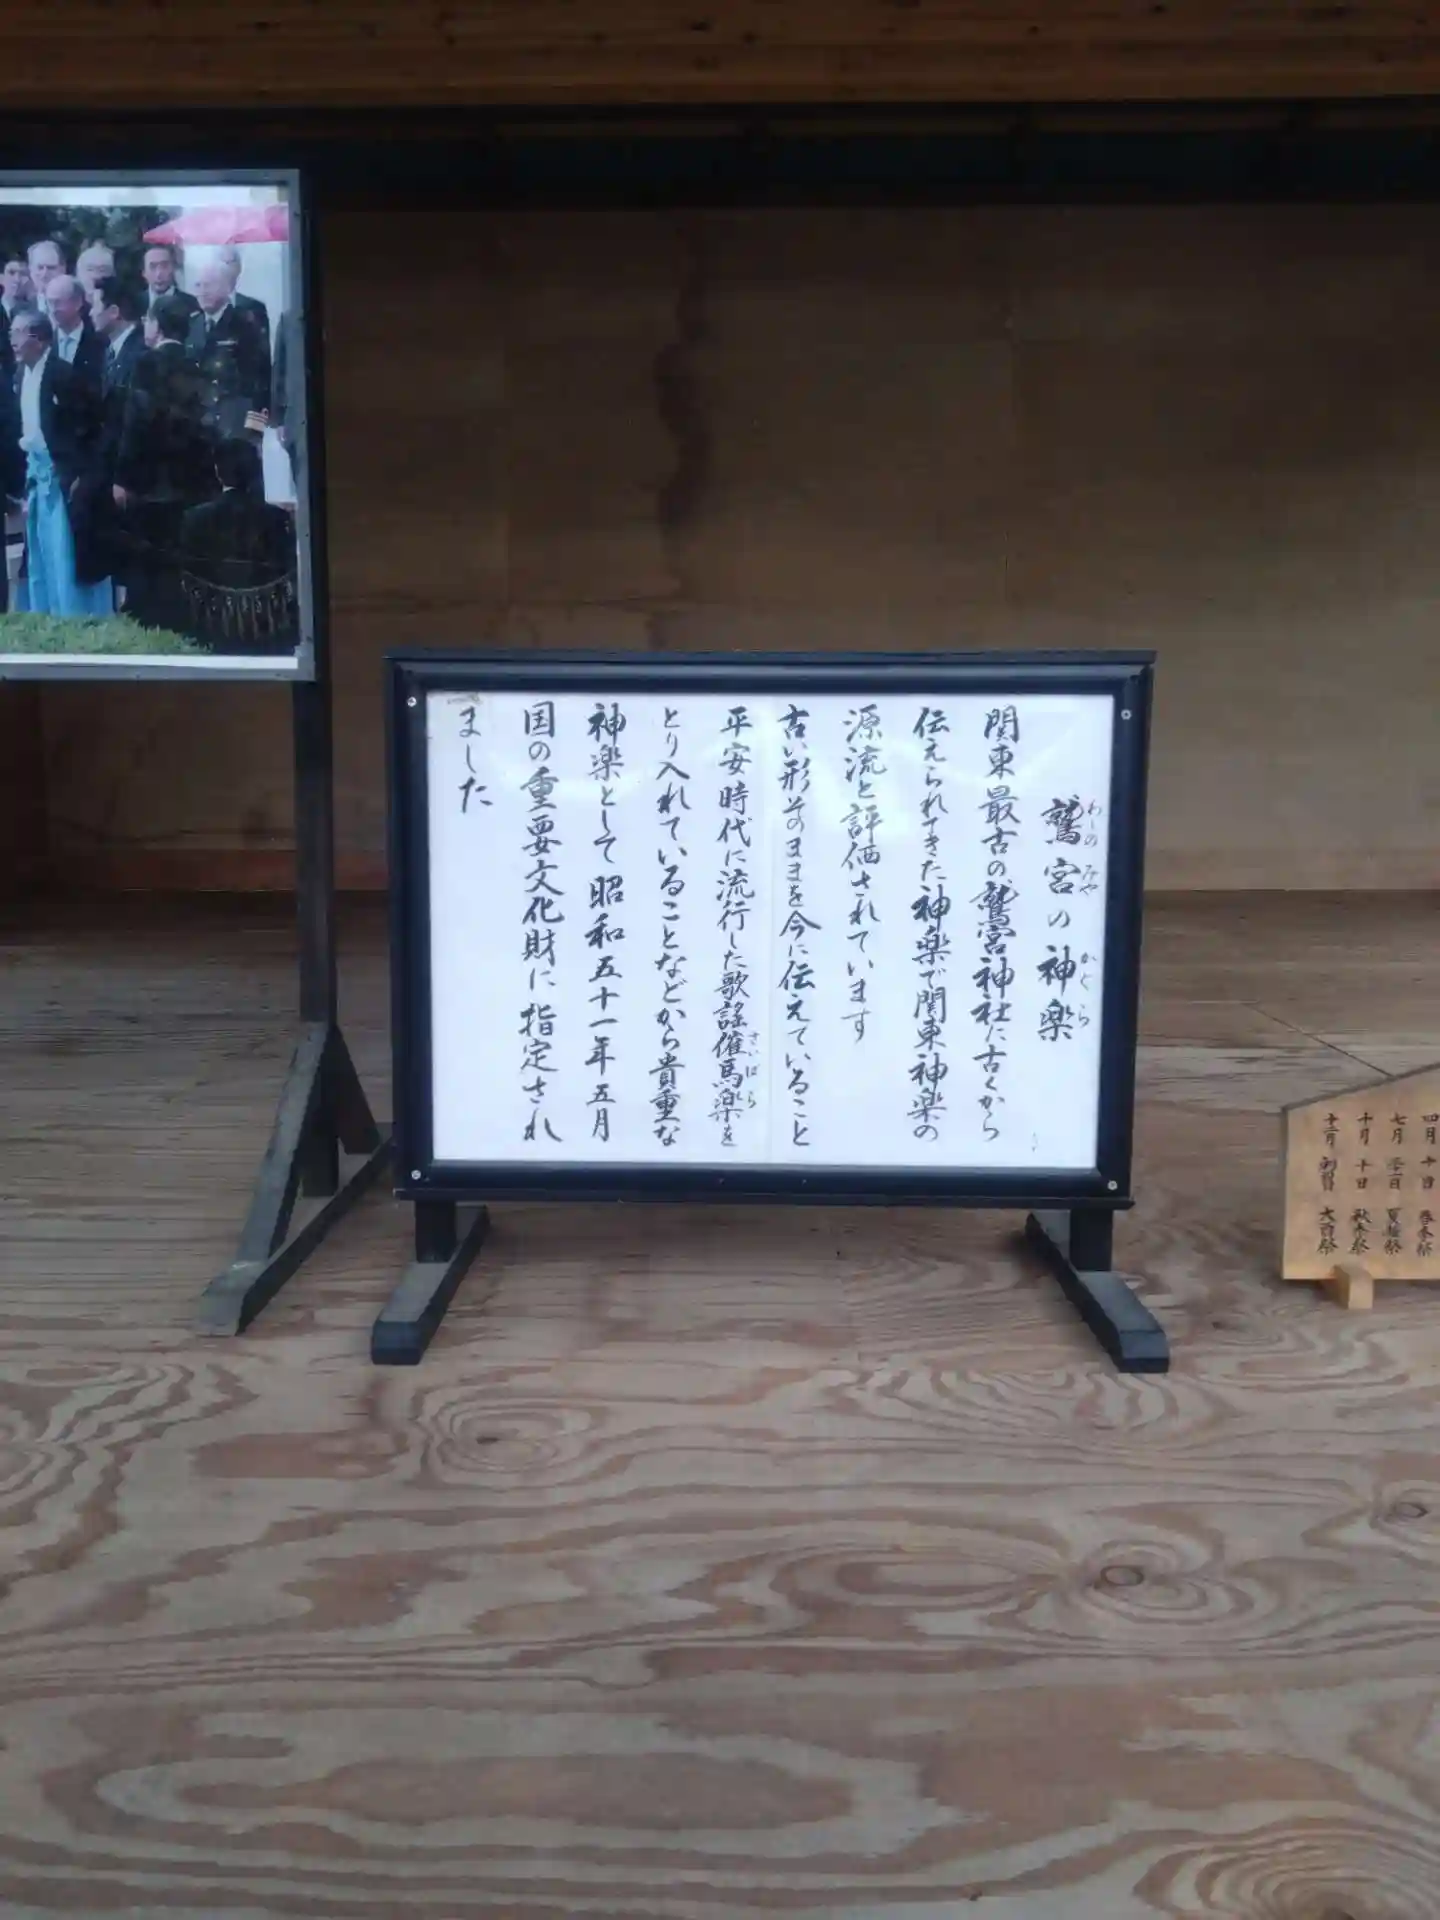 鷲宮の神楽
わしのみや かぐら
関東最古の鷲宮神社に古くから
伝えられてきた神楽で関東神楽の
源流と評価されています
古い形そのままを今に伝えていること
平安時代に流行した歌謡催馬楽を
さいばら
とり入れていることなどから貴重な
神楽として昭和五十一年五月
国の重要文化財に指定され
ました
四月 十日 春季祭
七月 三十一日 夏越祭
十月 十日 秋季祭
十二月 初酉 大酉祭